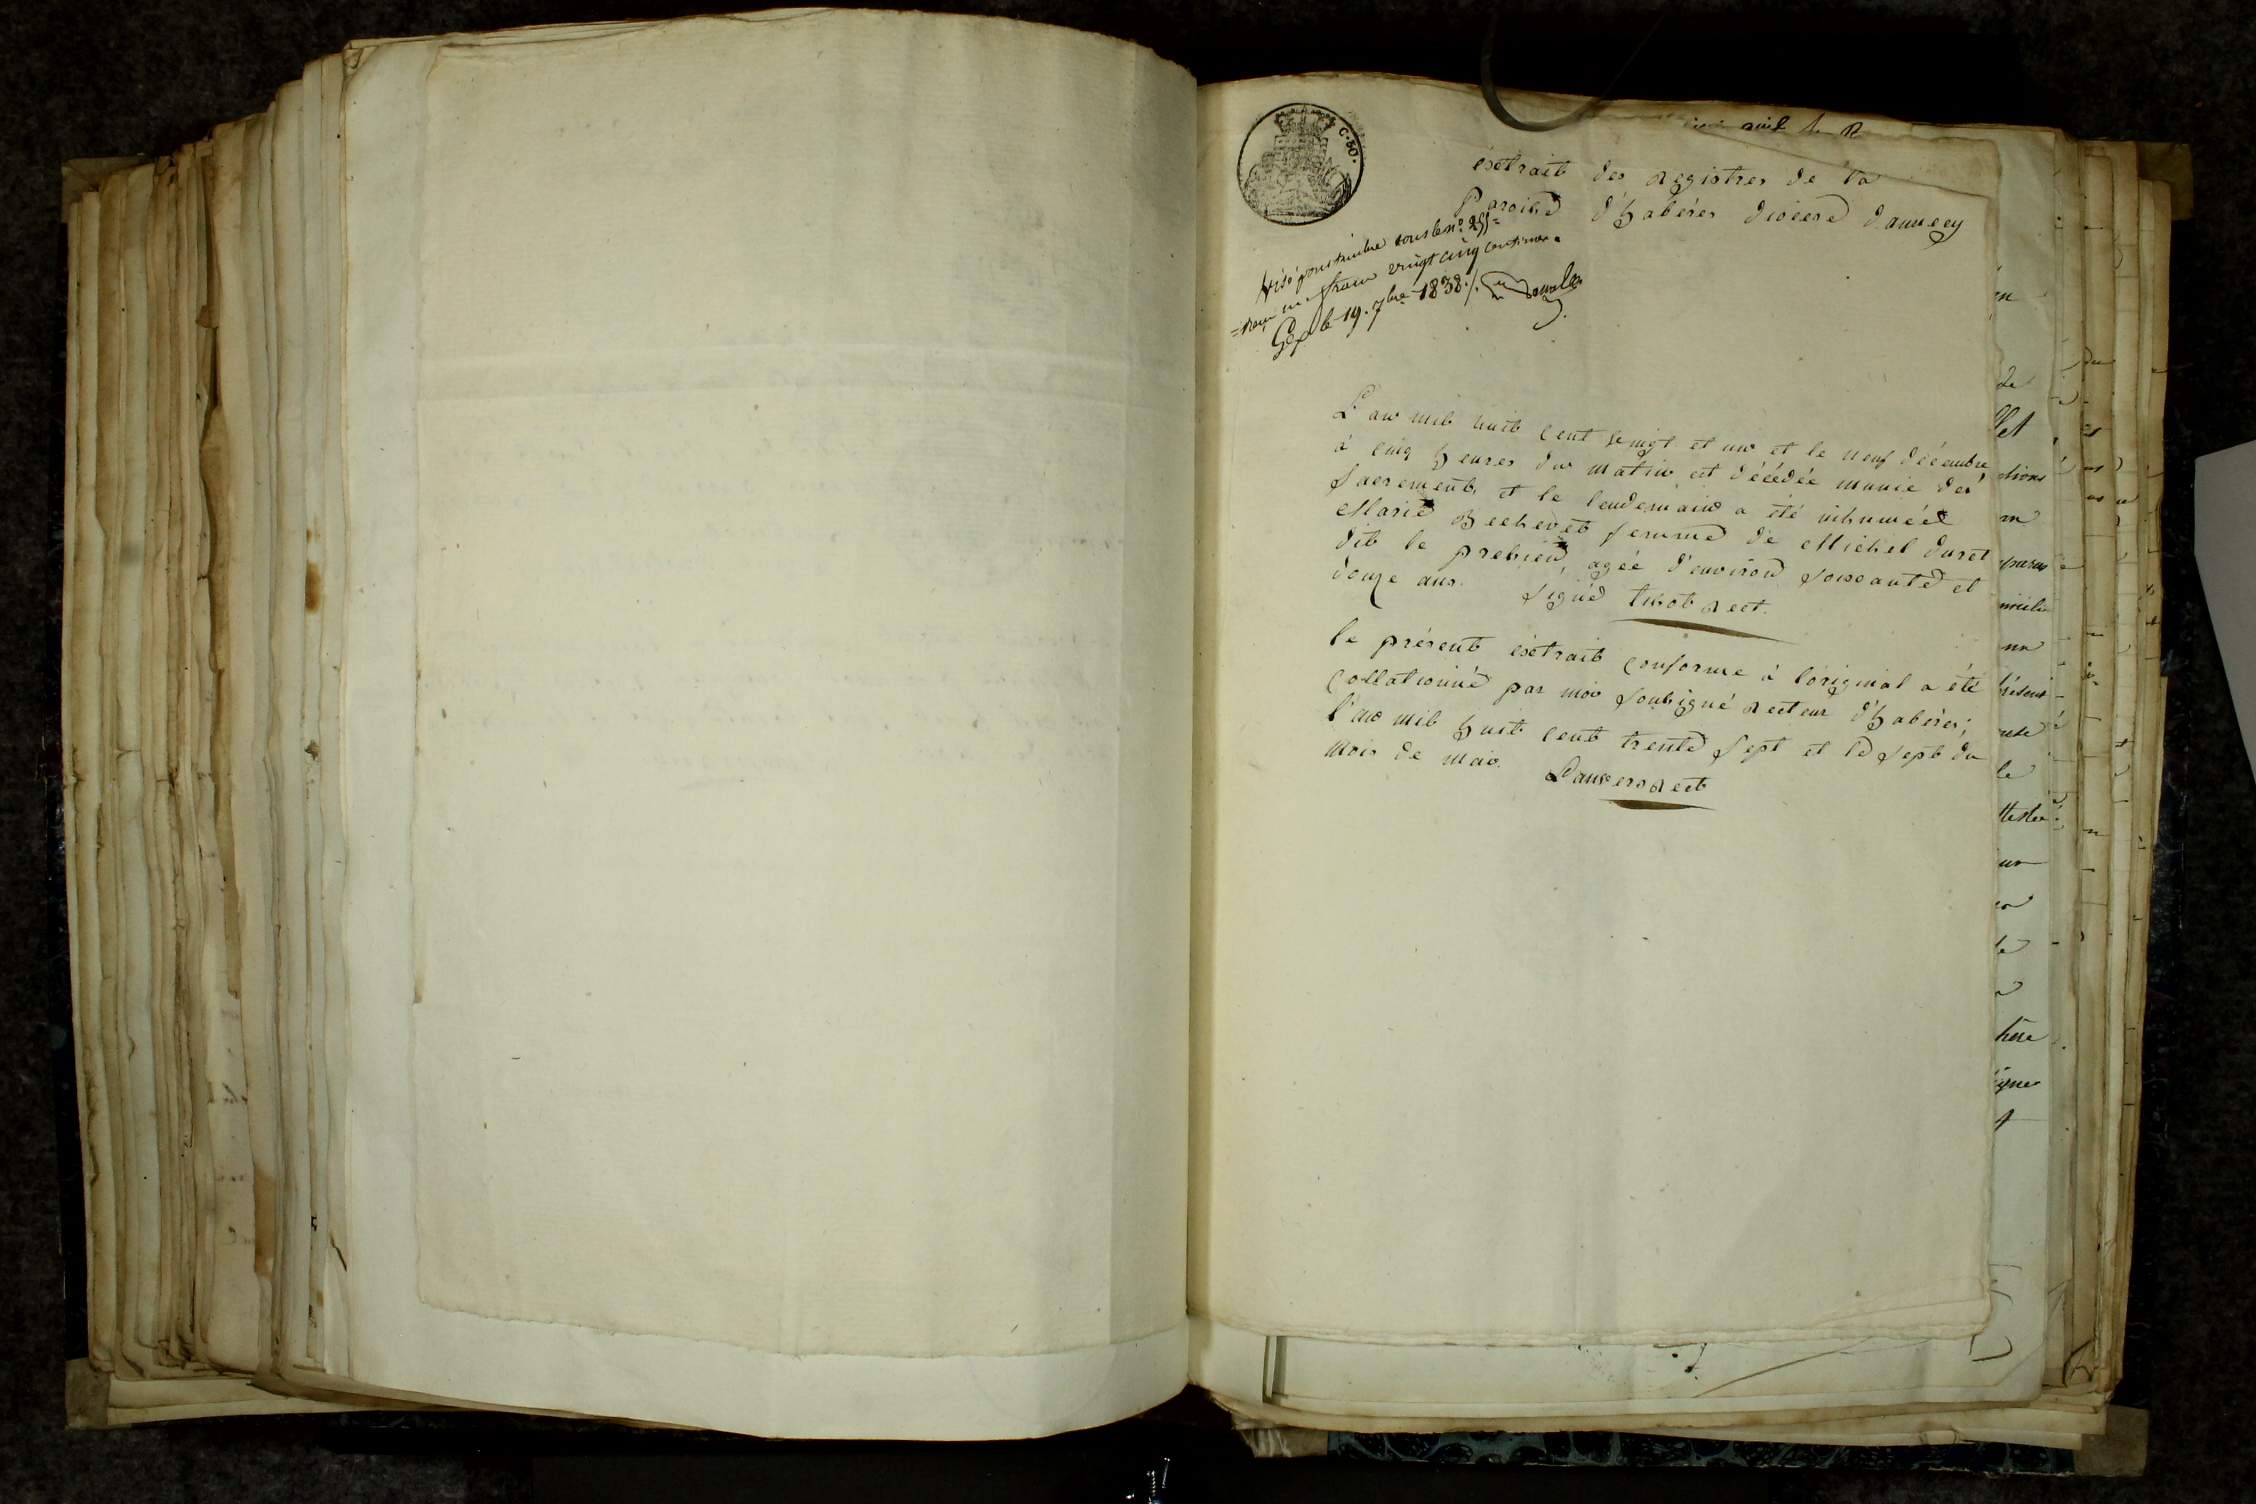 C. 50.
éxtrait des registres de la
Paroisse d'habères diocese d'annecy
Visé pour timbre sous le n.º 255
un franc vingt cinq centimes.
Gex le 19. 7bre 1838./.
L'an mil huit cent vingt et un et le neuf décembre
à cinq heures du matin est décédée munie des
sacrements et le lendemain a été inhumée
Marie Bechevet femme de Michel duret
dit le agée d'environ soixante et
douze ans. Signé rect.
le présent éxtrait conforme à l'original a été
collationné par moi soubsigné recteur d'habères;
l'an mil huit cent trente sept et le sept du
mois de mai. rect